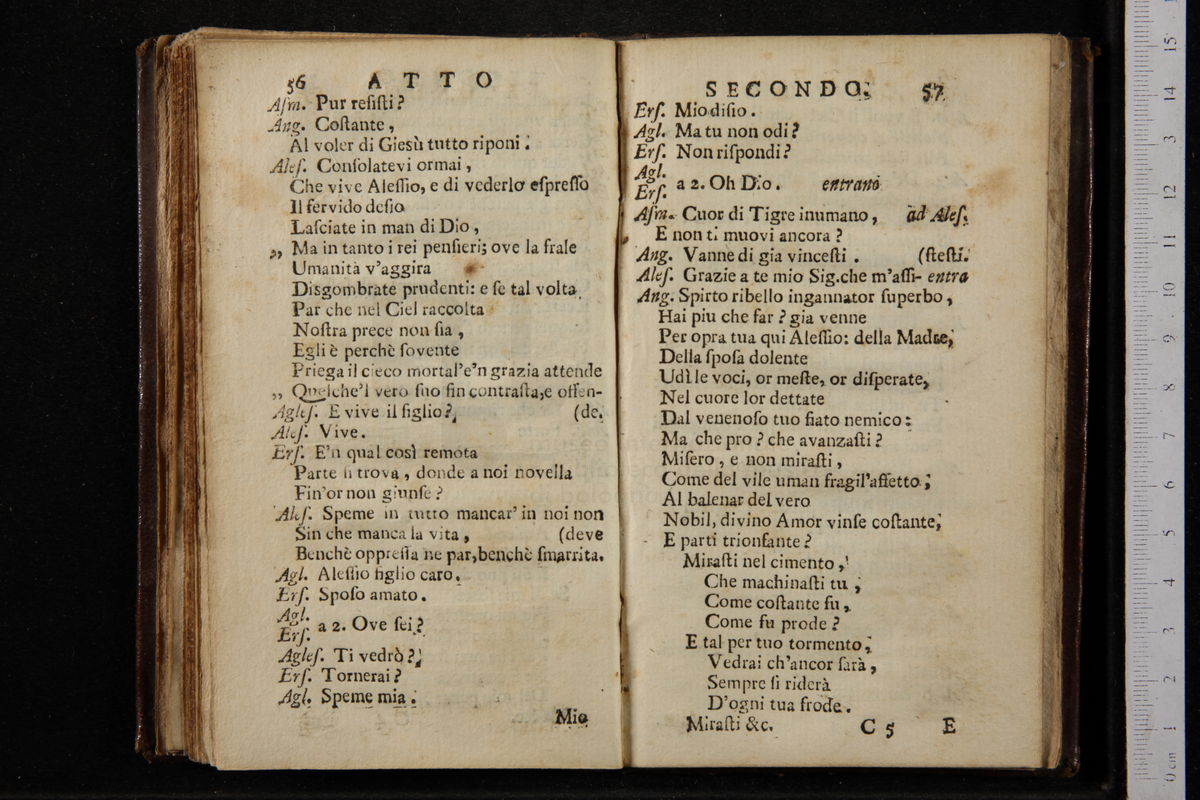 56 ATTO
Aſm. Pur reſiſti?
Ang. Coſtante,
Al voler di Gieſù tutto riponi.
Aleſ. Conſolatevi ormai,
Che vive Aleſſio, e di vederlo eſpreſſo
Il fervido deſio
Laſciate in man di Dio,
„ Ma in tanto i rei penſieri; ove la frale
Umanità v'aggira
Disgombrate prudenti: e ſe tal volta
Par che nel Ciel raccolta
Noſtra prece non ſia,
Egli è perchè ſovente
Priega il cieco mortal'e'n grazia attende
„ Quelche'l vero ſuo fin contraſta,e offen-
Agleſ. E vive il figlio? (de.
Aleſ. Vive.
Erſ. E'n qual così remota
Parte ſi trova, donde a noi novella
Fin'or non giunſe?
Aleſ. Speme in tutto mancar' in noi non
Sin che manca la vita, (deve
Benchè oppreſſa ne par,benchè ſmarrita.
Agl. Aleſſio figlio caro.
Erſ. Spoſo amato.
Agl.
Erſ. a 2. Ove ſei?
Agleſ. Ti vedrò?
Erſ. Tornerai?
Agl. Speme mia.
Mio
SECONDO. 57
Erſ. Mio diſio.
Agl. Ma tu non odi?
Erſ. Non riſpondi?
Agl.
Erſ. a 2. Oh Dio. entrano
Aſm. Cuor di Tigre inumano, ad Aleſ.
E non ti muovi ancora?
Ang. Vanne di gia vinceſti. (ſteſti.
Aleſ. Grazie a te mio Sig.che m'aſſi- entra
Ang. Spirto ribello ingannator ſuperbo,
Hai piu che far? gia venne
Per opra tua qui Aleſſio: della Madre,
Della ſpoſa dolente
Udì le voci, or meſte, or diſperate,
Nel cuore lor dettate
Dal venenoſo tuo fiato nemico:
Ma che pro? che avanzaſti?
Miſero, e non miraſti,
Come del vile uman fragil'affetto;
Al balenar del vero
Nobil, divino Amor vinſe coſtante;
E parti trionfante?
Miraſti nel cimento,
Che machinaſti tu,
Come coſtante fu,
Come fu prode?
E tal per tuo tormento,
Vedrai ch'ancor ſarà,
Sempre ſi riderà
D'ogni tua frode.
Miraſti &c. C 5 E
0 cm 1 2 3 4 5 6 7 8 9 10 11 12 13 14 15